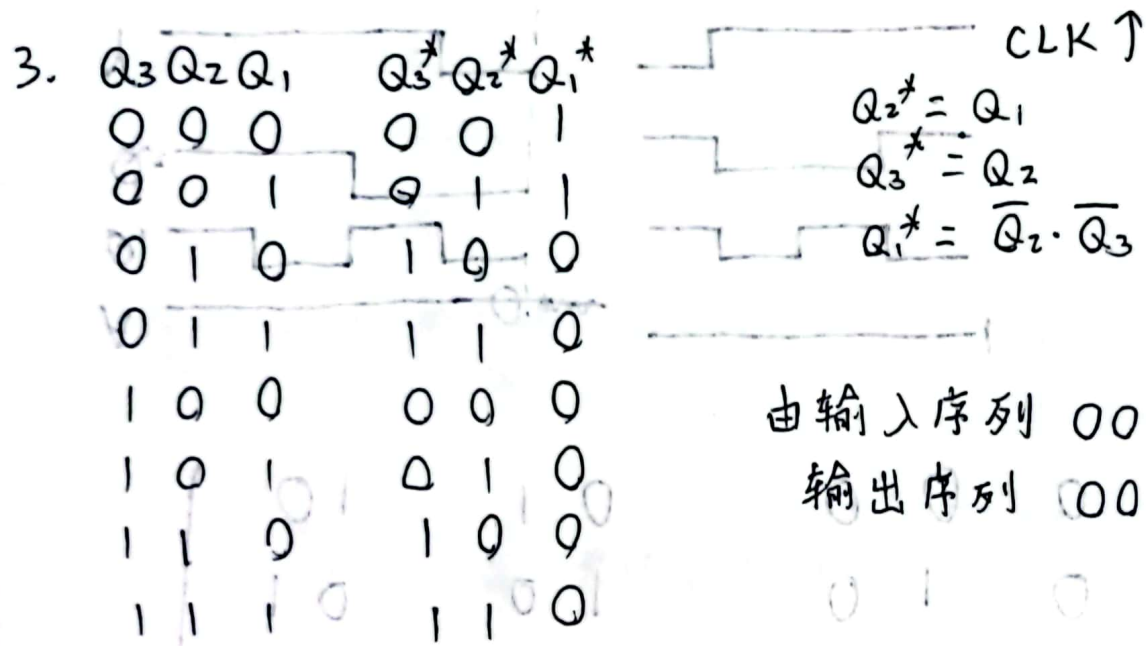 3. Q3 Q2 Q1 Q3* Q2* Q1*
0 0 0 0 0 1
0 0 1 0 1 1
0 1 0 1 0 0
0 1 1 1 1 0
1 0 0 0 0 0
1 0 1 0 1 0
1 1 0 1 0 0
1 1 1 1 1 0
CLK ↑
Q2* = Q1
Q3* = Q2
Q1* = Q̅2 · Q̅3
由输入序列 00
输出序列 00